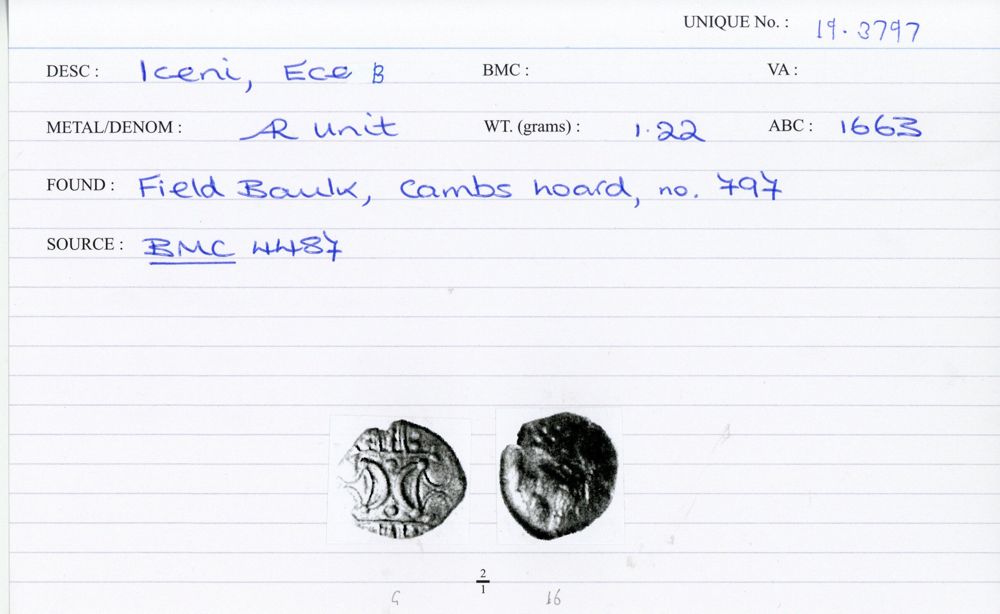 UNIQUE No. : 19.3797
DESC : Iceni, Ece B BMC : VA :
METAL/DENOM : AR unit WT. (grams) : 1.22 ABC : 1663
FOUND : Field Baulk, Cambs hoard, no. 797
SOURCE : BMC 4487
2
1
16